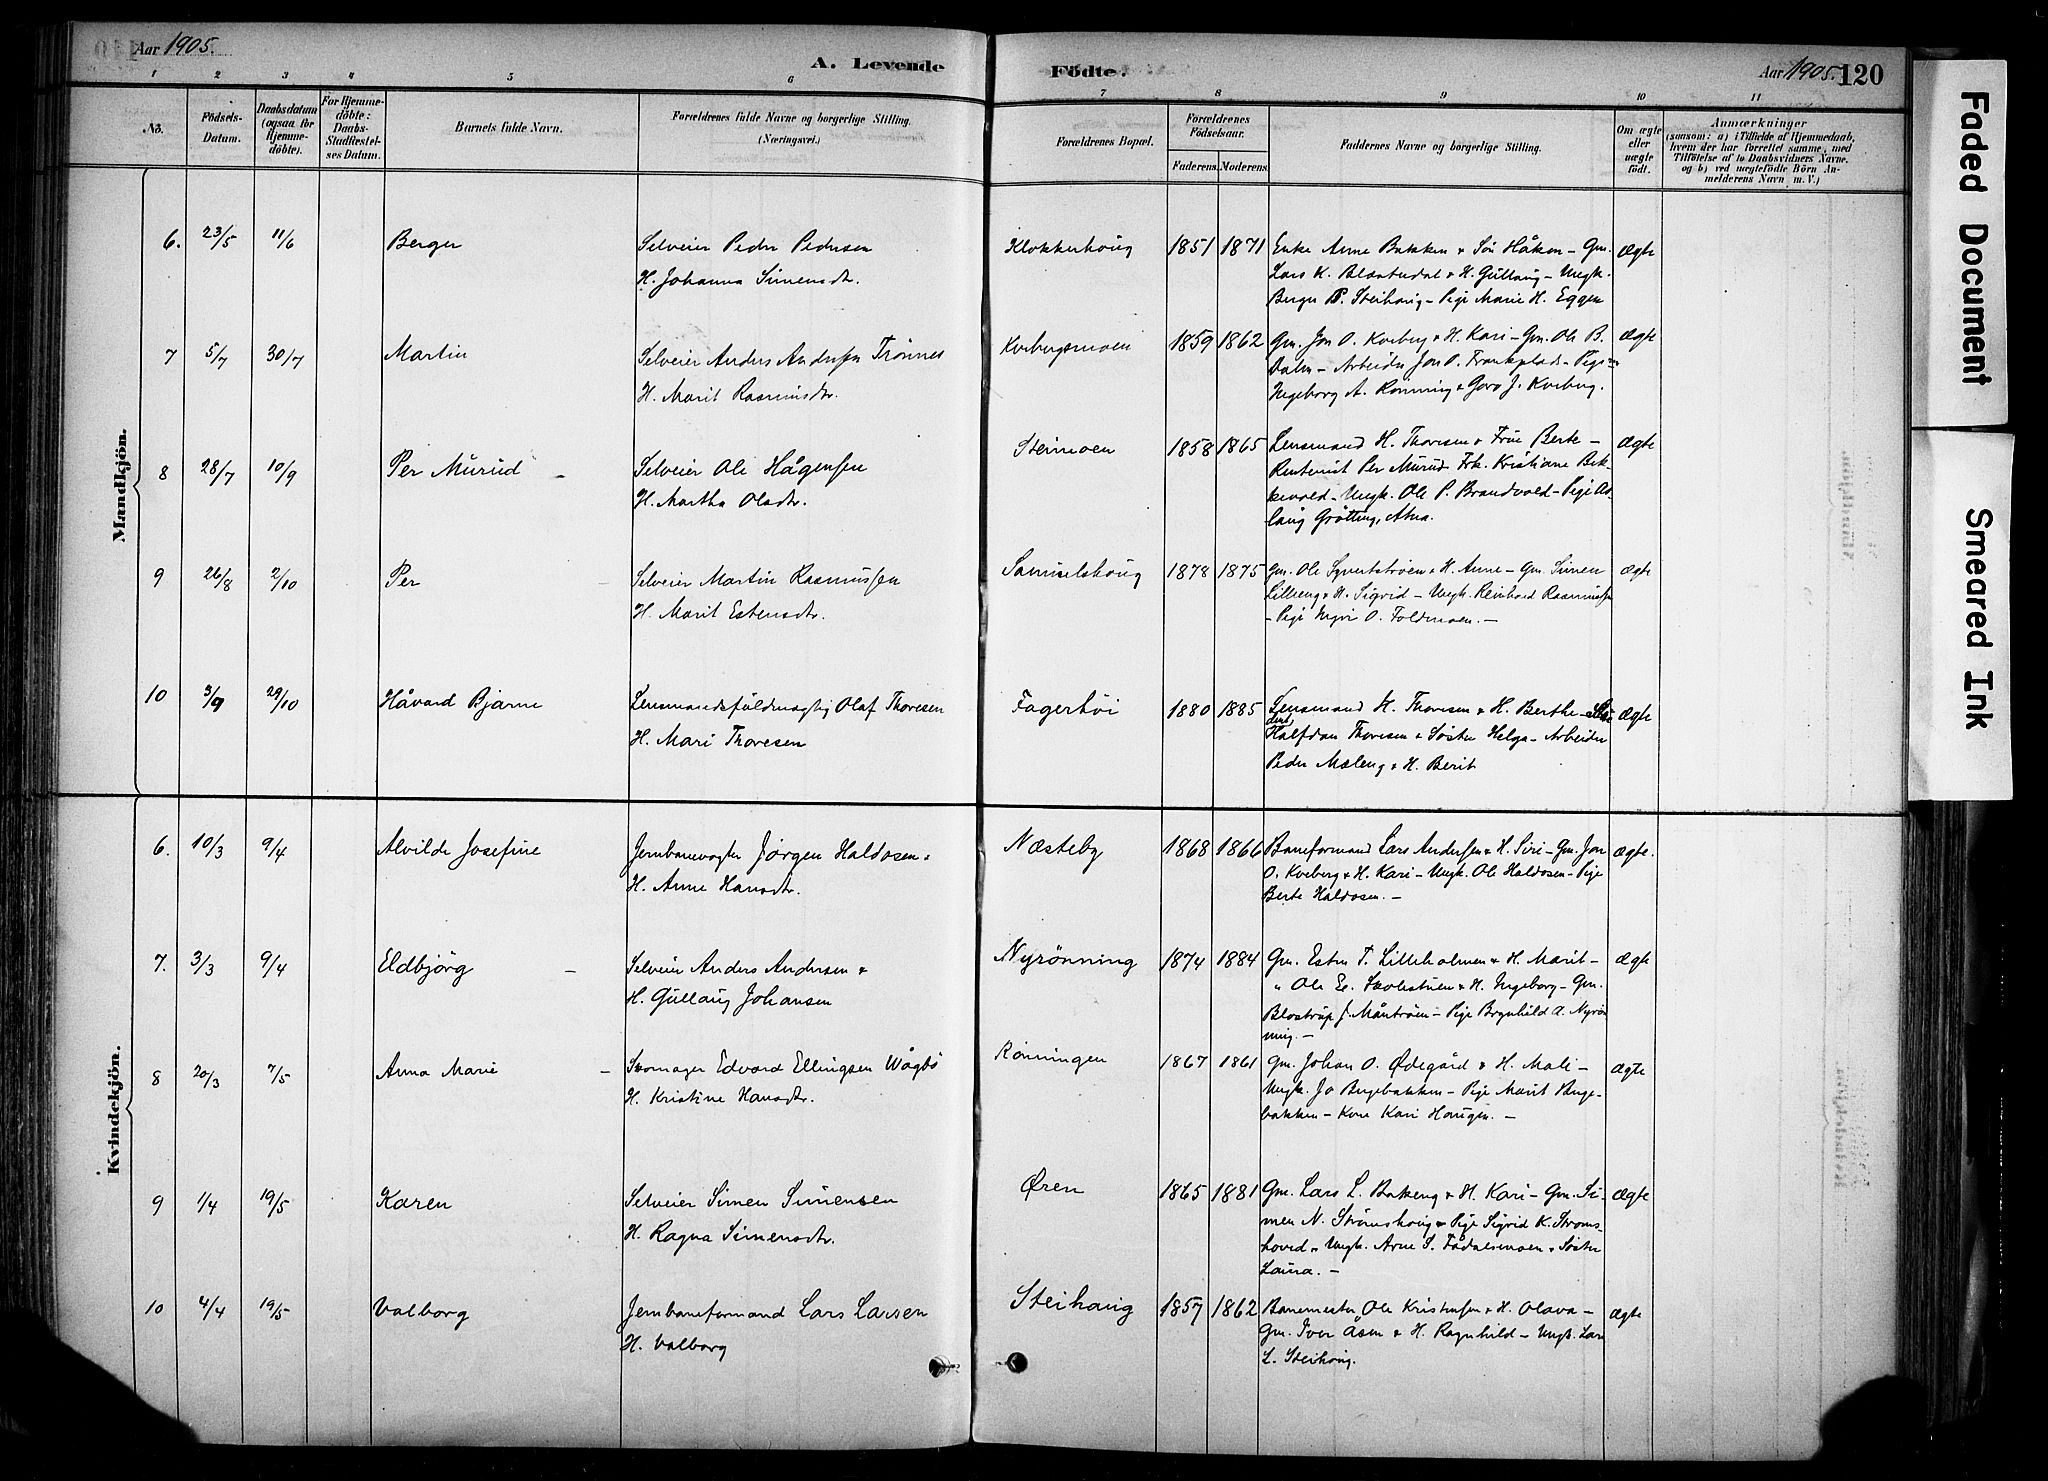 Aar 1905.
A. Levende
Födte.
Aar 1905. 120
1 2 3 4 5 6 7 8 9 10 11
No.
Födsels-Datum.
Daabsdatum (ogsaa for Hjemmedöbte).
For Hjemmedöbte: Daabs-Stadfæstelses Datum.
Barnets fulde Navn.
Forældrenes fulde Navne og borgerlige Stilling.
(Næringsvei.)
Forældrenes Bopæl.
Forældrenes Födselsaar.
Faderens. Moderens.
Faddernes Navne og borgerlige Stilling.
Om ægte eller uægte födt.
Anmærkninger
(saasom: a) i Tilfælde af Hjemmedaab,
hvem der har forrettet samme, med
Tilföielse af to Daabsvidners Navne.
og b) ved uægtefödte Börn An-
melderens Navn m. V.)
Mandkjön.
6. 23/5 11/6 Berger
Selveier Peder Pedersen
H. Johanna Simensdtr.
Klokkerhoug 1851 1871
Enke Anne Bakken & Søn Håkon - Gm.
Lars K. Blæstudal & H. Gullaug - Ungk.
Berger P. Steihaug - Pige Marie H. Eggen
ægte
7 5/7 30/7 Martin
Selveier Anders Andersen Trønnes
H. Marit Rasmusdtr.
Kvebergsmoen 1859 1862
Gm. Jon O. Kveberg & H. Kari - Gm. Ole B.
Dalen - Arbeider Jon O. - Piger
Ingeborg A. Rønning & Goro J. Kveberg.
ægte
8 28/7 10/9 Per Murud
Selveier Ole Hågensen
H. Martha Olsdtr.
Steimoen 1858 1865
Lensmand H. Thoresen & Frue Berte -
Rentenist Per Murud Frk. Kristiane Bek-
kevold - Ungk. Ole P. Brandvold - Pige As-
laug Grøtting, Atna.
ægte
9 26/8 2/10 Per
Selveier Martin Rasmussen
H. Marit Estensdtr.
Samuelshoug 1878 1875
Gm. Ole & H. Anne - Gm. Simen
Lilleeng & H. Sigrid - Ungk. Reinhard Rasmussen
- Pige O. Foldmoen. -
ægte
10 3/9 29/10 Håvard Bjarne
Lensmandsfuldmægtig Olaf Thoresen
H. Mari Thoresen
Fagerhøi 1880 1885
Lensmand H. Thoresen & H. Berthe -
Halfdan Thoresen & Søster Helga - Arbeider
Peder Mæleng & H. Berit
ægte
Kvindekjön.
6. 10/3 9/4 Alvilde Josefine
Jernbanevogter Jørgen Haldosen &
H. Anne Hansdtr.
Næsteby 1868 1866
Baneformand Lars Andersen & H. Siri - Gm. Jon
O. Kveberg & H. Kari - Ungk. Ole Haldosen - Pige
Berte Haldosen. -
ægte.
7. 3/3 9/4 Eldbjörg
Selveier Anders Andersen &
H. Gullaug Johansen
Nyrønning 1874 1884
Gm. Esten T. Lilleholmen & H. Marit -
" Ole E. & H. Ingeborg - Gm.
Blostrup J. Måntrøen - Pige Brynhild A. Nyrøn-
ning. -
ægte
8 20/3 7/5 Anna Marie
Skomager Edvard Ellingsen Wågbø
H. Kristine Hansdtr.
Rønningen 1867 1861
Gm. Johan O. Ødegård & H. Mali -
Ungk. Jo Bergebakken - Pige Marit Berge-
bakken - Kone Kari Haugen. -
ægte
9 1/4 19/5 Karen
Selveier Simen Simensen
H. Ragna Simensdtr.
Øren 1865 1881
Gm. Lars L. Bakeng & H. Kari - Gm. Si-
men N. Strømshoug & Pige Sigrid K. Stroms-
hoved & Ungk. Arne S. Fådalsmoen & Søster
Laura. -
ægte
10 4/4 19/5 Valborg
Jernbaneformand Lars Larsen
H. Valborg
Steihaug 1857 1862
Banemester Ole Kristensen & H. Olava -
Gm. Iver Åsen & H. Ragnhild - Ungk. Lars
L. Steihoug.
ægte
Faded Document
Smeared Ink